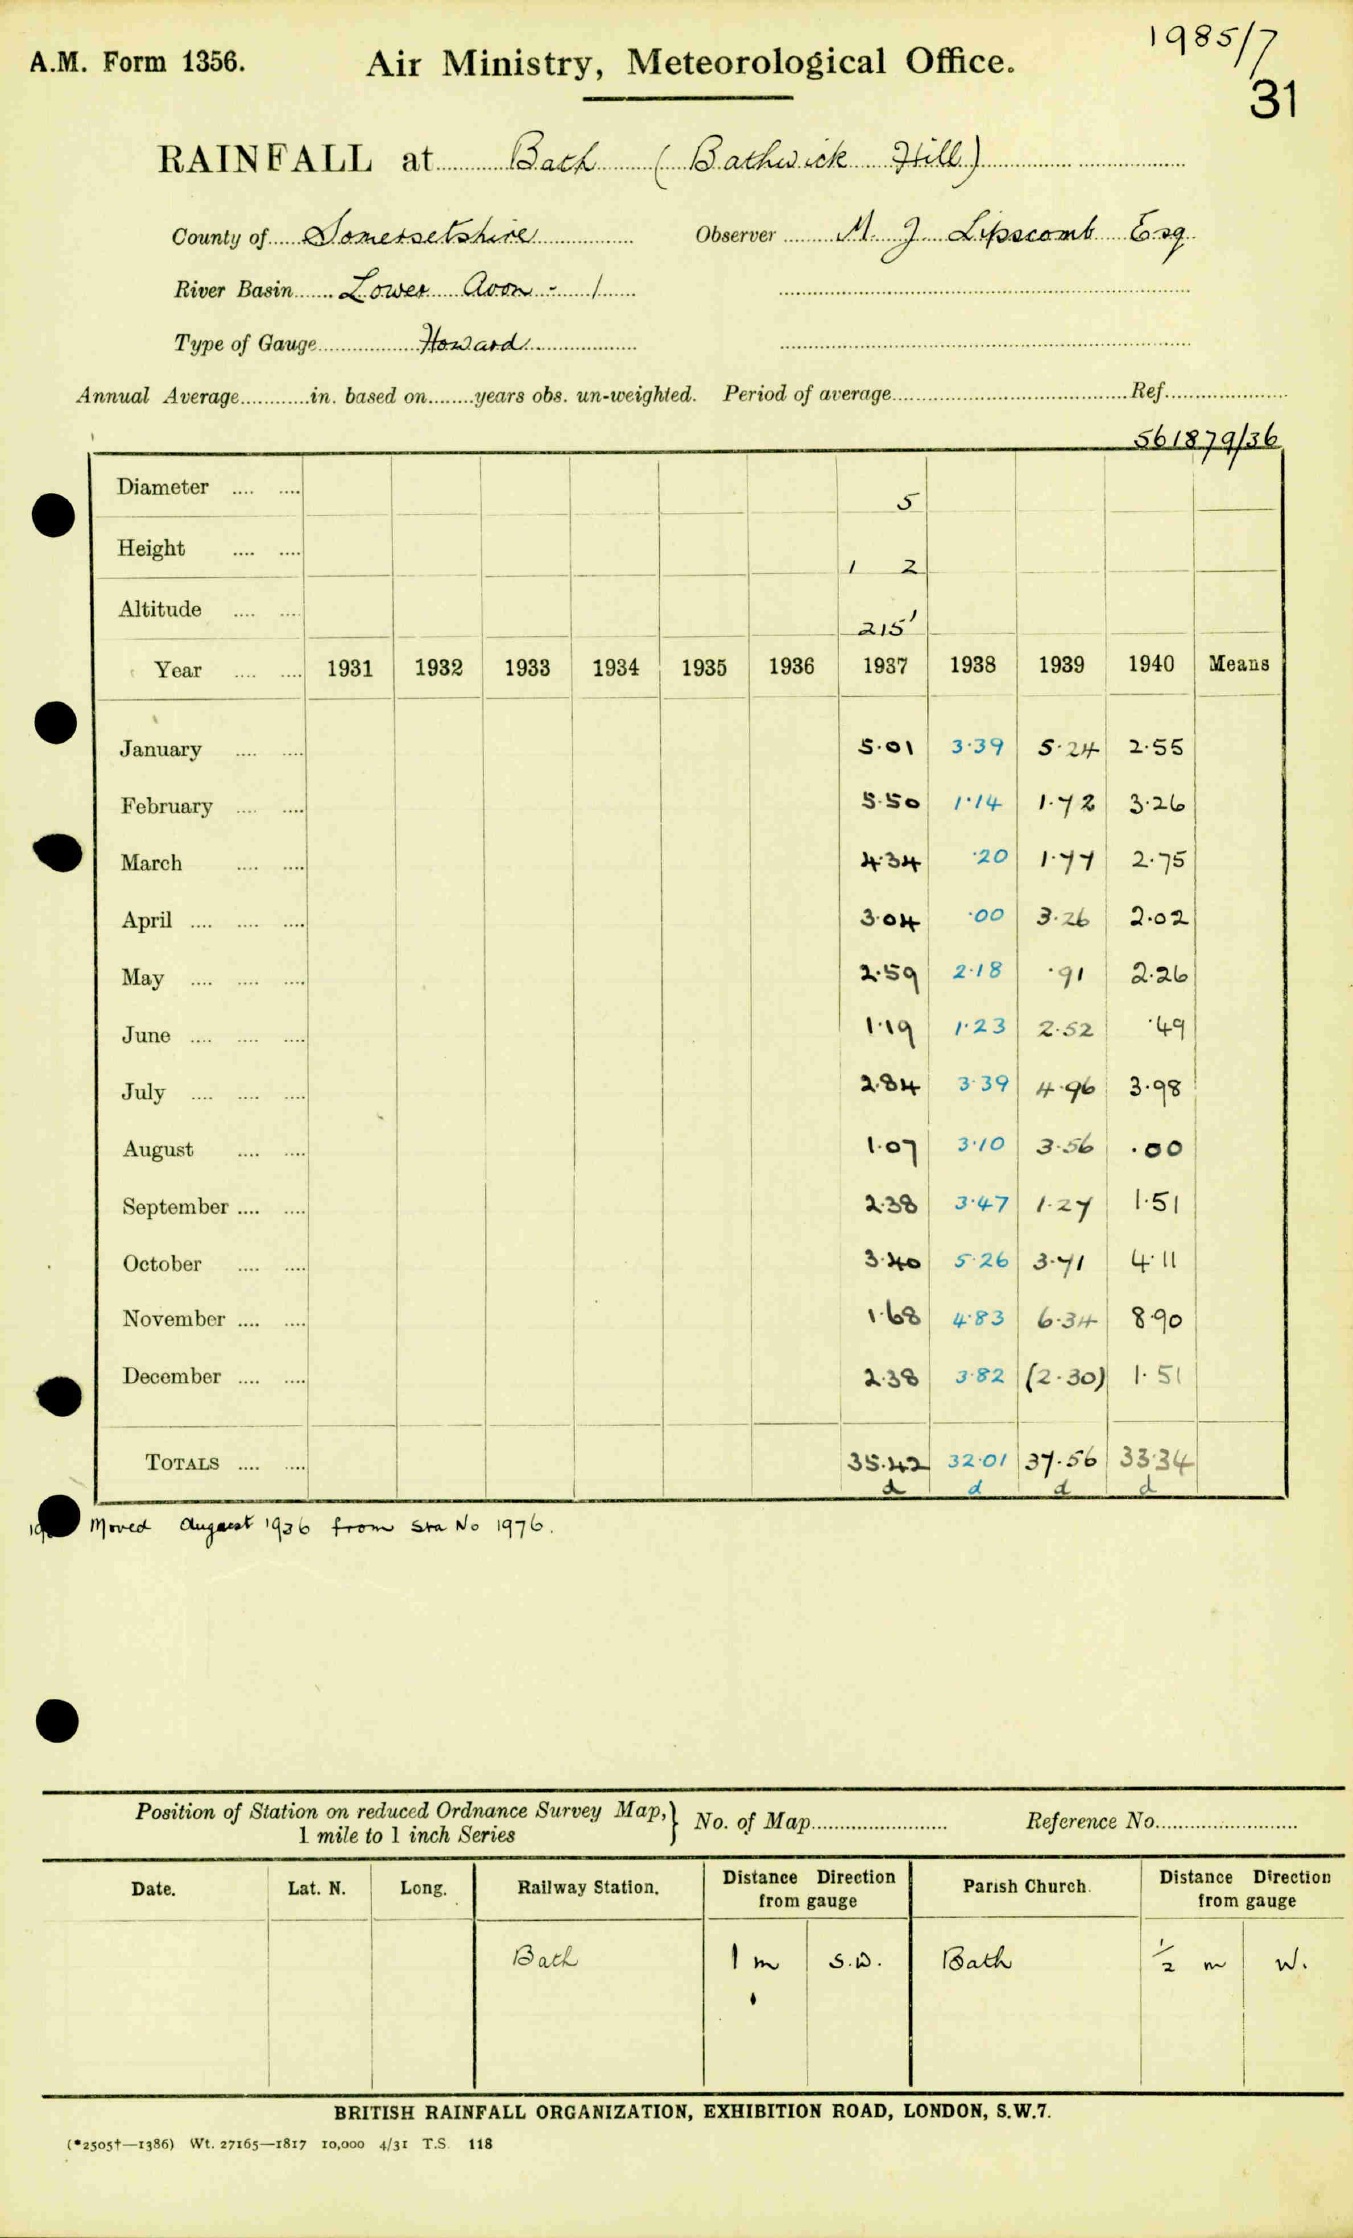 1985/7
A.M. Form 1356. Air Ministry, Meteorological Office.
31
RAINFALL at Bath (Bathwick Hill)
County of Somersetshire Observer M. J. Lipscomb Esq
River Basin Lower Avon - 1
Type of Gauge Howard
Annual Average in. based on years obs. un-weighted. Period of average Ref.
561879/36
Diameter 5
Height 1 2
Altitude 215'
Year 1931 1932 1933 1934 1935 1936 1937 1938 1939 1940 Means
January 5.01 3.39 5.24 2.55
February 5.50 1.14 1.72 3.26
March 4.34 .20 1.77 2.75
April 3.04 .00 3.26 2.02
May 2.59 2.18 .91 2.26
June 1.19 1.23 2.52 .49
July 2.84 3.39 4.96 3.98
August 1.07 3.10 3.56 .00
September 2.38 3.47 1.27 1.51
October 3.40 5.26 3.71 4.11
November 1.68 4.83 6.34 8.90
December 2.38 3.82 (2.30) 1.51
TOTALS 35.42 32.01 37.56 33.34
d d d d
Moved August 1936 from Sta No 1976.
Position of Station on reduced Ordnance Survey Map, } No. of Map Reference No.
1 mile to 1 inch Series
Date. Lat. N. Long. Railway Station. Distance Direction from gauge Parish Church. Distance Direction from gauge
Bath 1 m S.W. Bath 1/2 m W.
BRITISH RAINFALL ORGANIZATION, EXHIBITION ROAD, LONDON, S.W.7.
(*2505†—1386) Wt. 27165—1817 10,000 4/31 T.S. 118